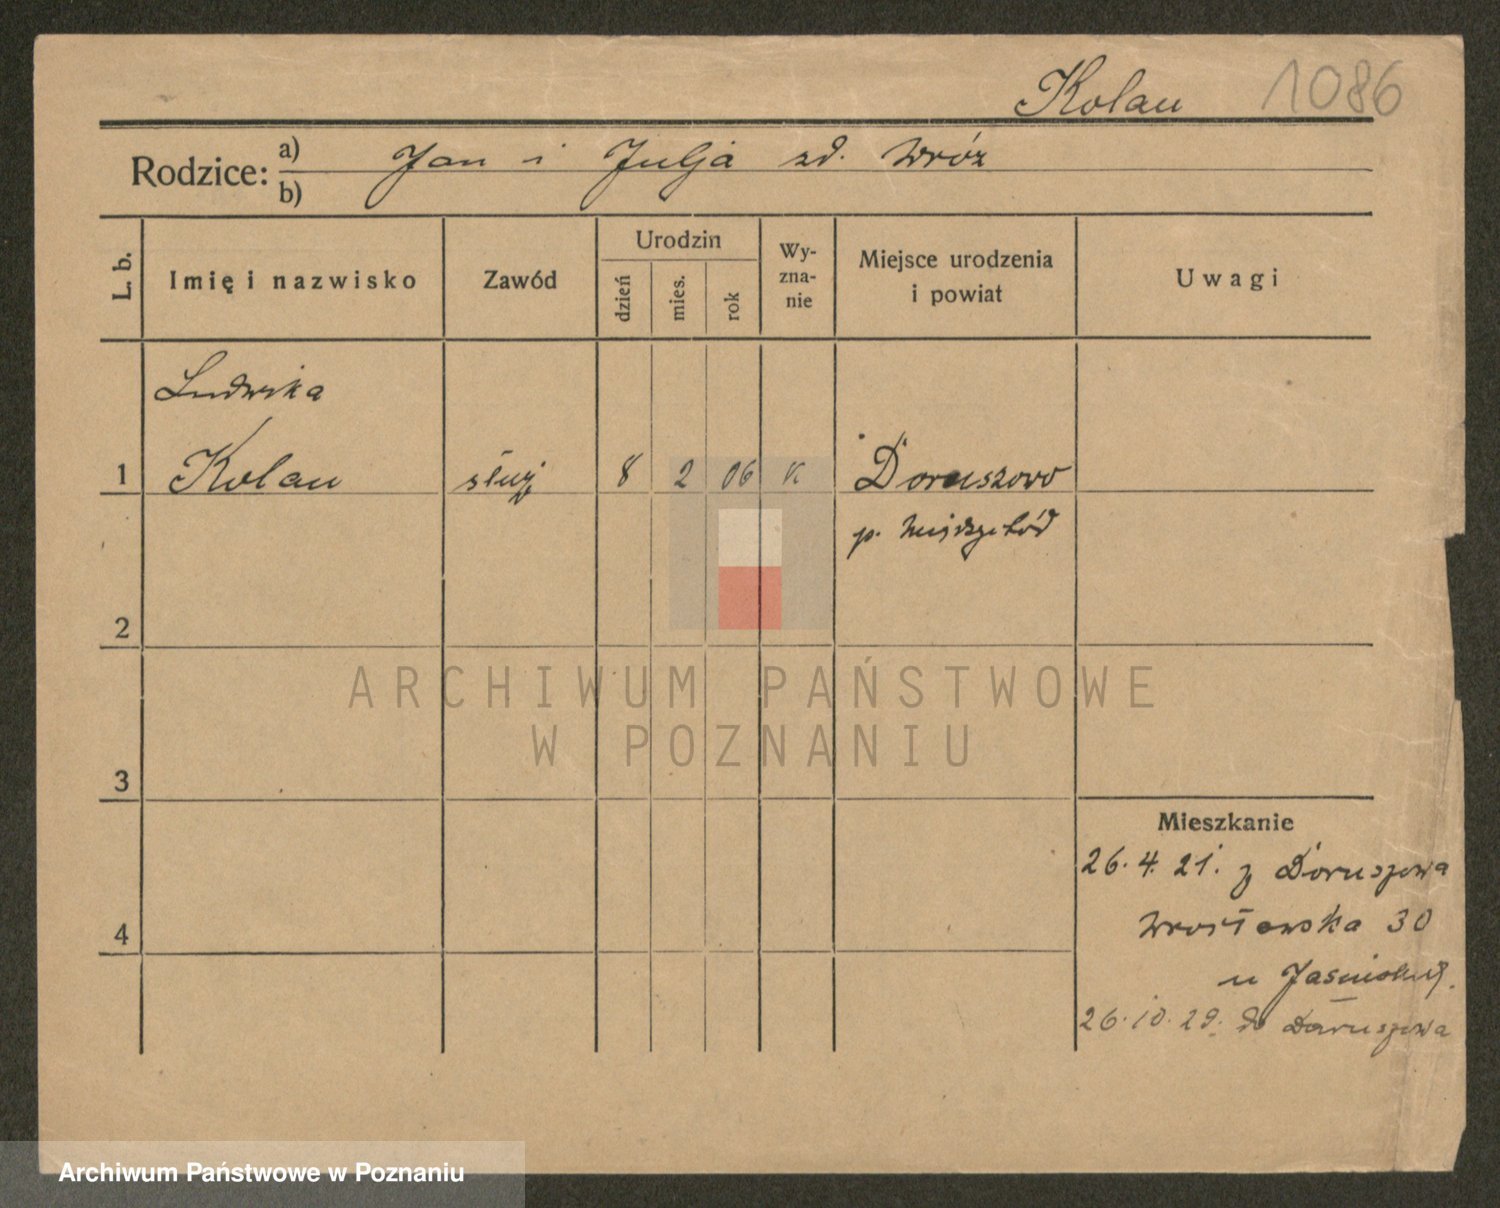 Kolau 1086
Rodzice: a) Jan i Julja zd. Wróz
b)
L. b.
Imię i nazwisko
Zawód
Urodzin
dzień
mies.
rok
Wy-
zna-
nie
Miejsce urodzenia
i powiat
Uwagi
Ludwika
1 Kolau służ 8 2 06 K Doruszowo
p.
2
ARCHIWUM PAŃSTWOWE
W POZNANIU
3
Mieszkanie
26. 4. 21. z Doruszowa
4
Wrocławska 30
u
26. 10. 29. do Doruszowa
Archiwum Państwowe w Poznaniu